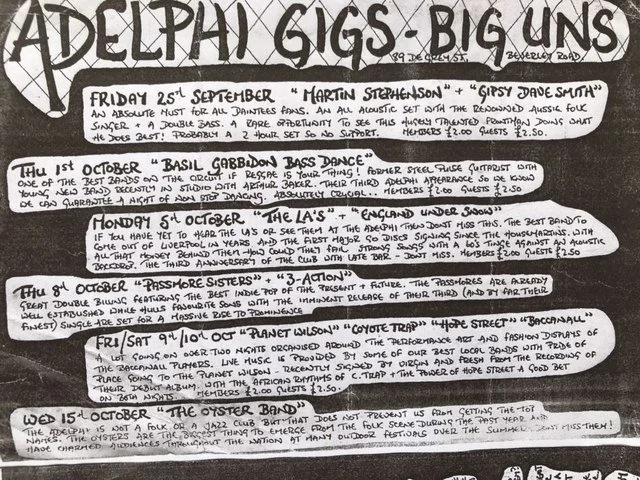 ADELPHI GIGS - BIG UNS
89 DE GREY ST. BEVERLEY ROAD
FRIDAY 25TH SEPTEMBER "MARTIN STEPHENSON" + "GIPSY DAVE SMITH"
AN ABSOLUTE MUST FOR ALL DAINTEES FANS. AN ALL ACOUSTIC SET WITH THE RENOWNED AUSSIE FOLK
SINGER + A DOUBLE BASS. A RARE OPPORTUNITY TO SEE THIS HUGELY TALENTED FRONTMAN DOING WHAT
HE DOES BEST! PROBABLY A 2 HOUR SET SO NO SUPPORT. MEMBERS £2.00 GUESTS £2.50.
THU 1ST OCTOBER "BASIL GABBIDON BASS DANCE"
ONE OF THE BEST BANDS ON THE CIRCUIT IF REGGAE IS YOUR THING! FORMER STEEL PULSE GUITARIST WITH
YOUNG NEW BAND RECENTLY IN STUDIO WITH ARTHUR BAKER. THEIR THIRD ADELPHI APPEARANCE SO WE KNOW
WE CAN GUARANTEE A NIGHT OF NON STOP DANCING. ABSOLUTELY CRUCIAL.. MEMBERS £2.00 GUESTS £2.50
MONDAY 5TH OCTOBER "THE LA'S" + "ENGLAND UNDER SNOW"
IF YOU HAVE YET TO HEAR THE LA'S OR SEE THEM AT THE ADELPHI THEN DONT MISS THIS. THE BEST BAND TO
COME OUT OF LIVERPOOL IN YEARS AND THE FIRST MAJOR GO DISCS SIGNING SINCE THE HOUSEMARTINS. WITH
ALL THAT MONEY BEHIND THEM - HOW COULD THEY FAIL. STRONG SONGS WITH A 60'S TINGE AGAINST AN ACOUSTIC
BACKDROP. THE THIRD ANNIVERSARY OF THE CLUB WITH LATE BAR - DONT MISS. MEMBERS £2.00 GUESTS £2.50
THU 8TH OCTOBER "PASSMORE SISTERS" + "3-ACTION"
GREAT DOUBLE BILLING FEATURING THE BEST INDIE POP OF THE PRESENT + FUTURE. THE PASSMORES ARE ALREADY
WELL ESTABLISHED WHILE HULLS FAVOURITE SONS WITH THE IMMINENT RELEASE OF THEIR THIRD (AND BY FAR THEIR
FINEST) SINGLE ARE SET FOR A MASSIVE RISE TO PROMINENCE
FRI/SAT 9TH/10TH OCT "PLANET WILSON" "COYOTE TRAP" "HOPE STREET" "BACCANALL"
A LOT GOING ON OVER TWO NIGHTS ORGANISED AROUND THE PERFORMANCE ART AND FASHION DISPLAYS OF
THE BACCANALL PLAYERS. LIVE MUSIC IS PROVIDED BY SOME OF OUR BEST LOCAL BANDS WITH PRIDE OF
PLACE GOING TO THE PLANET WILSON - RECENTLY SIGNED BY VIRGIN AND FRESH FROM THE RECORDING OF
THEIR DEBUT ALBUM. WITH THE AFRICAN RHYTHMS OF C.TRAP + THE POWER OF HOPE STREET A GOOD BET
ON BOTH NIGHTS. MEMBERS £2.00 GUESTS £2.50.
WED 15TH OCTOBER "THE OYSTER BAND"
THE ADELPHI IS NOT A FOLK OR A JAZZ CLUB BUT THAT DOES NOT PREVENT US FROM GETTING THE TOP
NAMES. THE OYSTERS ARE THE BIGGEST THING TO EMERGE FROM THE FOLK SCENE DURING THE PAST YEAR AND
HAVE CHARMED AUDIENCES THROUGHOUT THE NATION AT MANY OUTDOOR FESTIVALS OVER THE SUMMER. DONT MISS THEM!